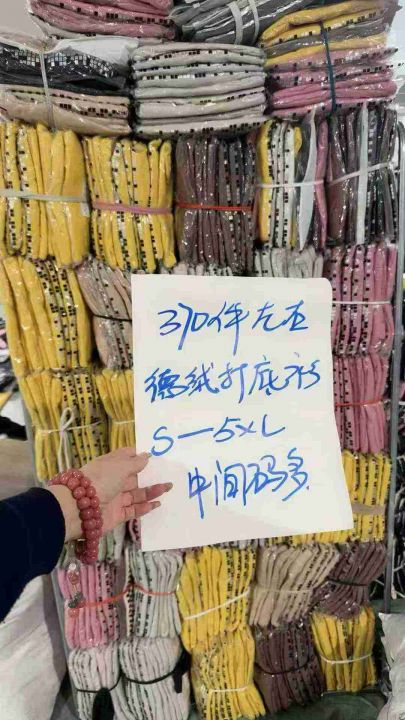 370件左右
德绒打底衫
S—5XL
中间码多